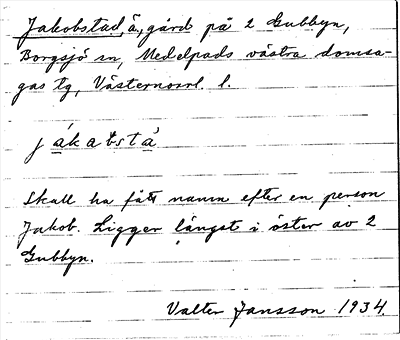 Jakobstad, ä., gård på 2 Gubbyn,
Borgsjö sn, Medelpads västra domsa-
gas tg, Västernorrl. l.
jákabstà
Skall ha fått namn efter en person
Jakob. Ligger längst i öster av 2
Gubbyn.
Valter Jansson 1934.